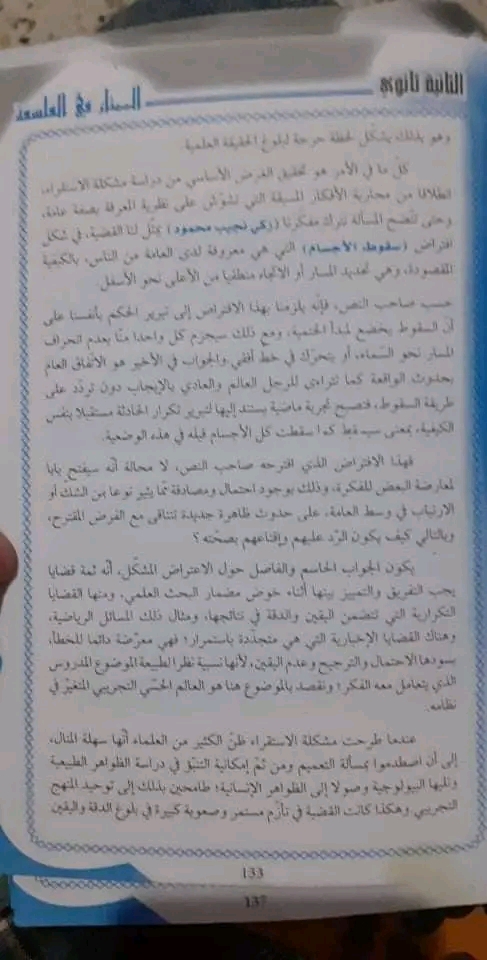 الثانية ثانوي
في الفلسفة
وهو بذلك يشكل لحظة حرجة لبلوغ الحقيقة العلمية.
كلّ ما في الأمر هو تحقيق الغرض الأساسي من دراسة مشكلة الاستقراء،
انطلاقا من محاربة الأفكار المسبقة التي تشوّش على نظرية المعرفة بصفة عامة،
وحتى تتّضح المسألة نترك مفكّرنا (زكي نجيب محمود) يمثّل لنا القضية، في شكل
افتراض (سقوط الأجسام) التي هي معروفة لدى العامة من الناس، بالكيفية
المقصودة، وهي تحديد المسار أو الاتجاه منطقيا من الأعلى نحو الأسفل.
حسب صاحب النص، فإنّه يلزمنا بهذا الافتراض إلى تبرير الحكم بأنفسنا على
أنّ السقوط يخضع لمبدأ الحتمية، ومع ذلك سيجزم كل واحدا منّا بعدم انحراف
المسار نحو السّماء، أو يتحرّك في خط أفقي والجواب في الأخير هو الاتّفاق العام
بحدوث الواقعة كما تتراءى للرجل العالم والعادي بالإيجاب دون تردّد على
طريقة السقوط، فتصبح تجربة ماضية يستند إليها لتبرير تكرار الحادثة مستقبلا بنفس
الكيفية، بمعنى سيسقط كما سقطت كل الأجسام قبله في هذه الوضعية.
فهذا الافتراض الذي اقترحه صاحب النص، لا محالة أنّه سيفتح بابا
لمعارضة البعض للفكرة، وذلك بوجود احتمال ومصادفة ممّا يثير نوعا من الشك أو
الارتياب في وسط العامة، على حدوث ظاهرة جديدة تتنافى مع الفرض المقترح،
وبالتالي كيف يكون الرّد عليهم وإقناعهم بصحّته؟
يكون الجواب الحاسم والفاصل حول الاعتراض المشكّل، أنّه ثمة قضايا
يجب التفريق والتمييز بينها أثناء خوض مضمار البحث العلمي، ومنها القضايا
التكرارية التي تتضمن اليقين والدقة في نتائجها، ومثال ذلك المسائل الرياضية،
وهناك القضايا الإخبارية التي هي متجدّدة باستمرار؛ فهي معرّضة دائما للخطأ،
يسودها الاحتمال والترجيح وعدم اليقين، لأنها نسبية نظرا لطبيعة الموضوع المدروس
الذي يتعامل معه الفكر؛ ونقصد بالموضوع هنا هو العالم الحسّي التجريبي المتغيّر في
نظامه.
عندما طرحت مشكلة الاستقراء ظنّ الكثير من العلماء أنّها سهلة المنال،
إلى أن اصطدموا بمسألة التعميم ومن ثمّ إمكانية التنبّؤ في دراسة الظواهر الطبيعية
وتليها البيولوجية وصولا إلى الظواهر الإنسانية؛ طامحين بذلك إلى توحيد المنهج
التجريبي وهكذا كانت القضية في تأزّم مستمر وصعوبة كبيرة في بلوغ الدقة واليقين
133
137